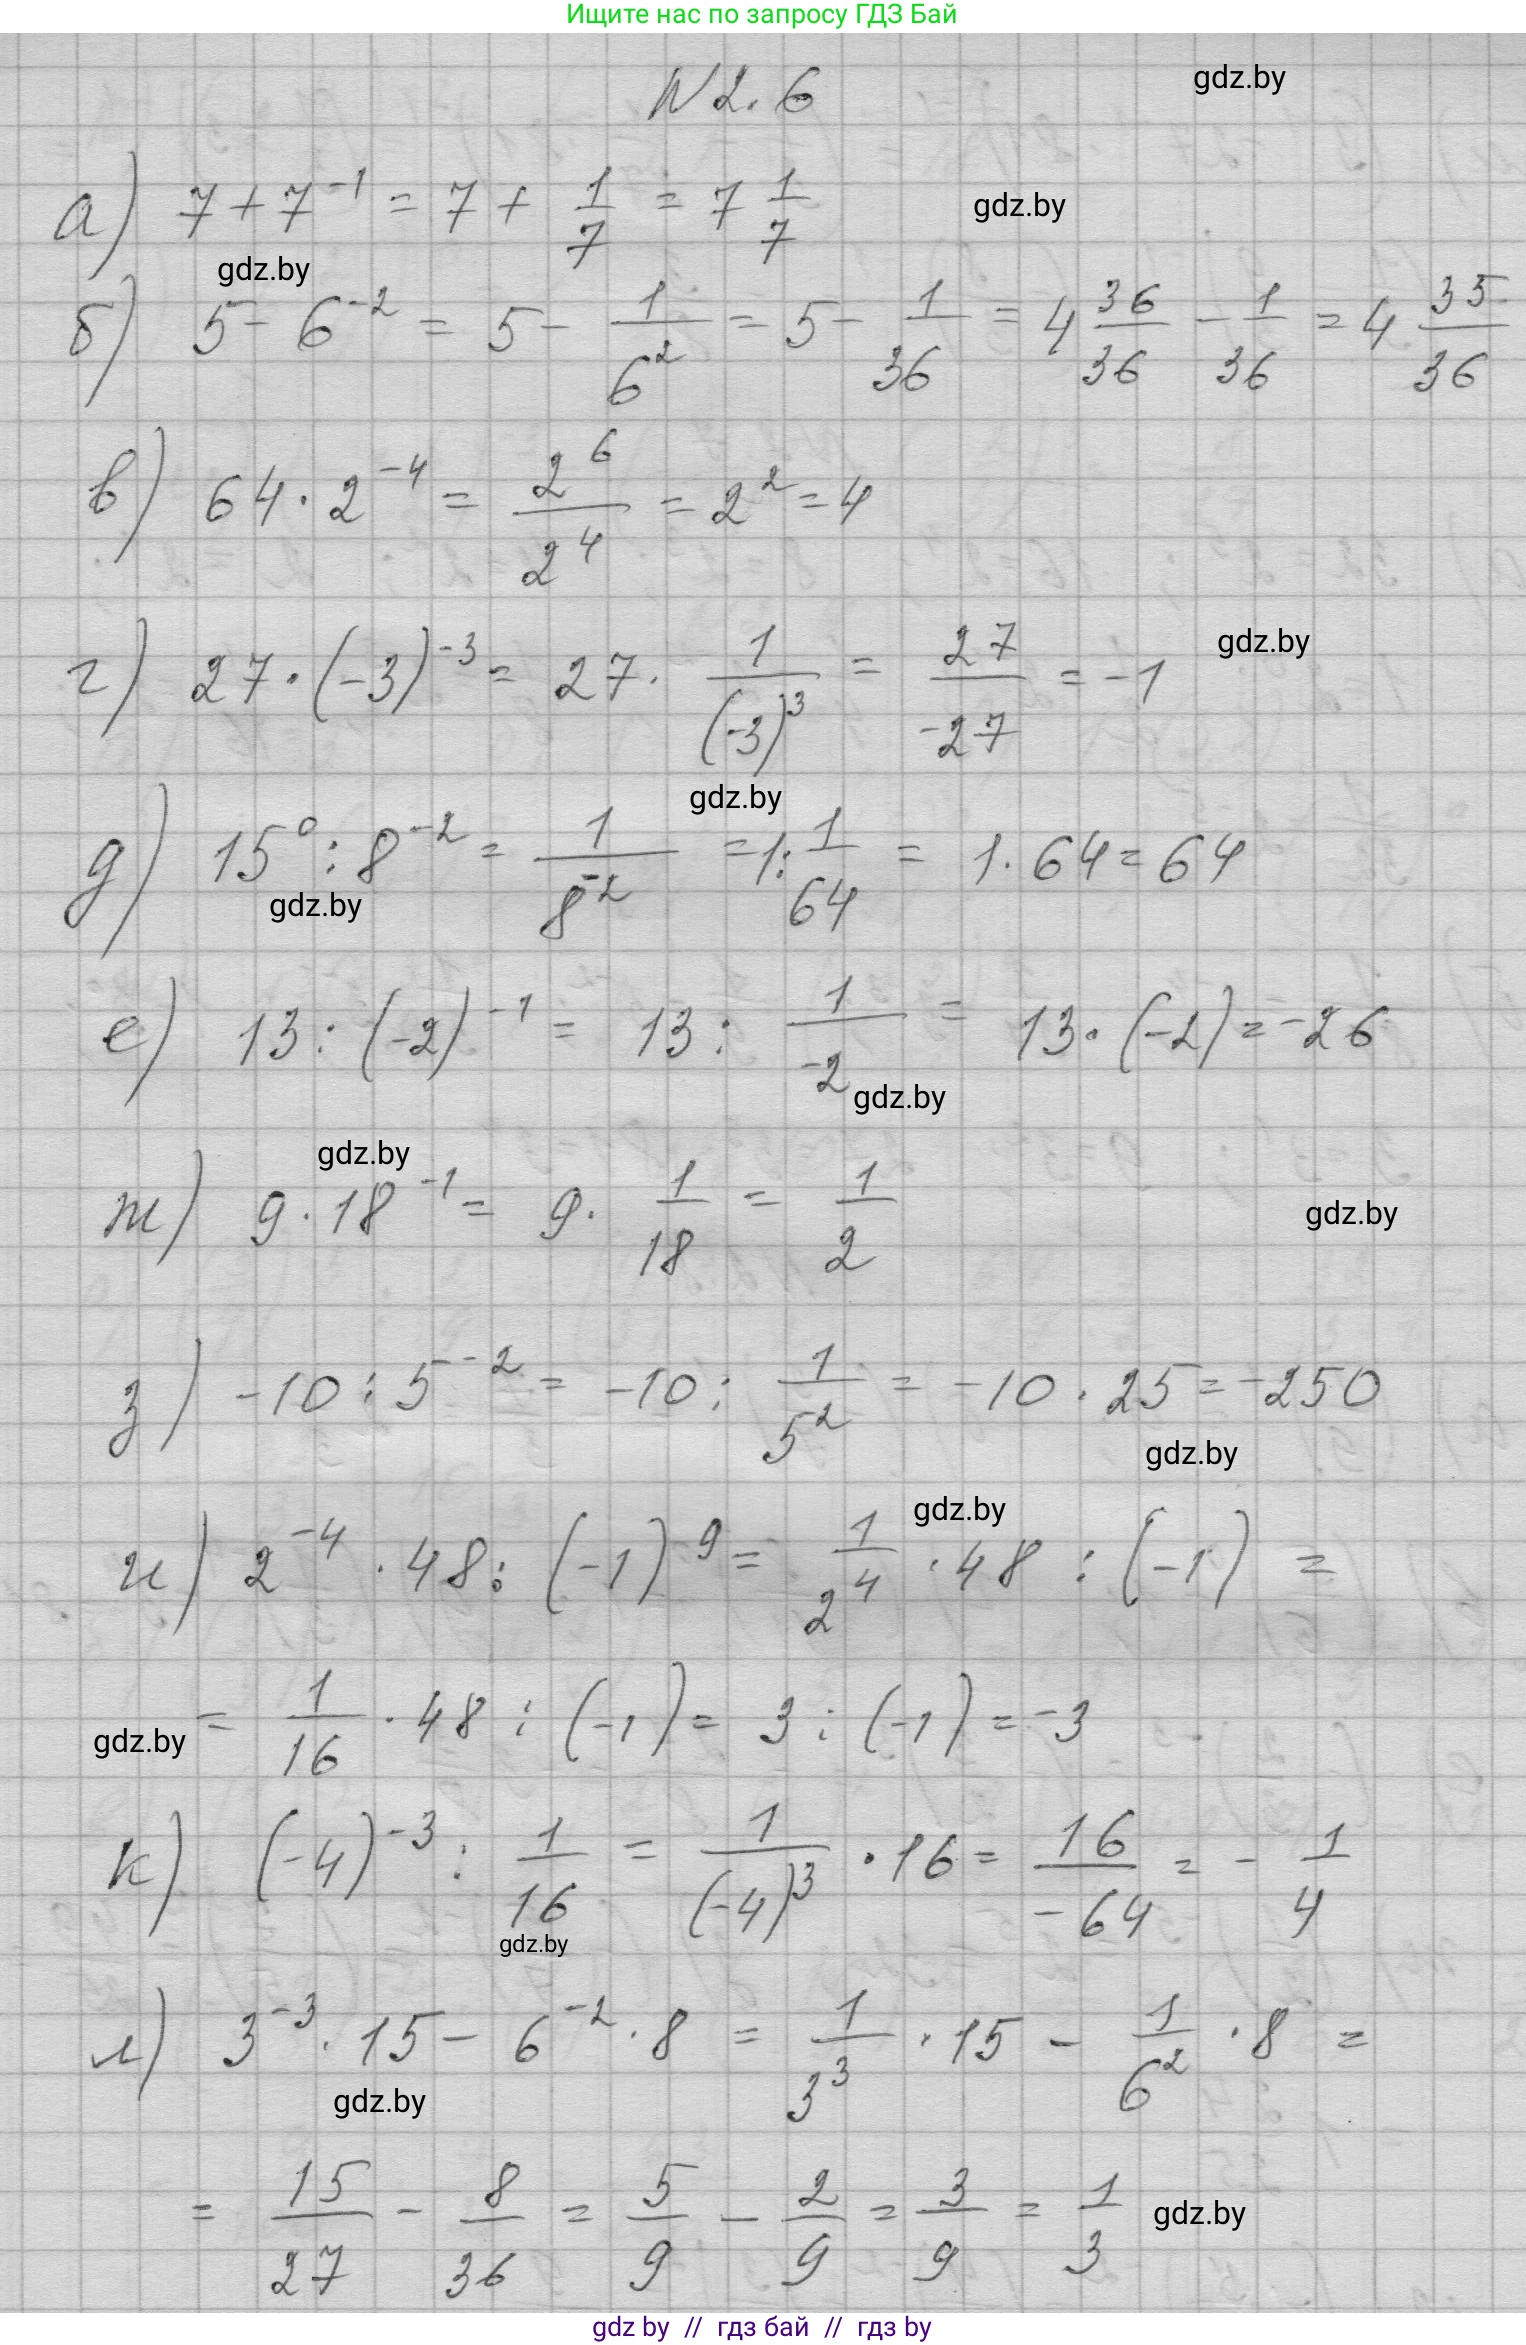 Ищите нас по запросу ГДЗ Бай
N 2.6
gdz.by
а) 7 + 7⁻¹ = 7 + 1/7 = 7 1/7
gdz.by
gdz.by
б) 5 - 6⁻² = 5 - 1/6² = 5 - 1/36 = 4 36/36 - 1/36 = 4 35/36
в) 64 · 2⁻⁴ = 2⁶/2⁴ = 2² = 4
г) 27 · (-3)⁻³ = 27 · 1/(-3)³ = 27/-27 = -1
gdz.by
gdz.by
д) 15⁰ : 8⁻² = 1/8⁻² = 1 : 1/64 = 1 · 64 = 64
gdz.by
е) 13 : (-2)⁻¹ = 13 : 1/-2 = 13 · (-2) = -26
gdz.by
gdz.by
ж) 9 · 18⁻¹ = 9 · 1/18 = 1/2
gdz.by
з) -10 : 5⁻² = -10 : 1/5² = -10 · 25 = -250
gdz.by
gdz.by
и) 2⁻⁴ · 48 : (-1)⁹ = 1/2⁴ · 48 : (-1) =
= 1/16 · 48 : (-1) = 3 : (-1) = -3
gdz.by
к) (-4)⁻³ : 1/16 = 1/(-4)³ · 16 = 16/-64 = - 1/4
gdz.by
л) 3⁻³ · 15 - 6⁻² · 8 = 1/3³ · 15 - 1/6² · 8 =
gdz.by
= 15/27 - 8/36 = 5/9 - 2/9 = 3/9 = 1/3
gdz.by
gdz by // гдз бай // гдз by